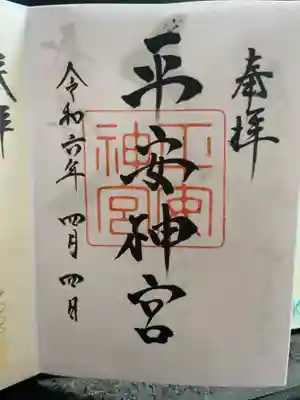 奉拝
平安神宮
平安神宮
令和六年 四月四日